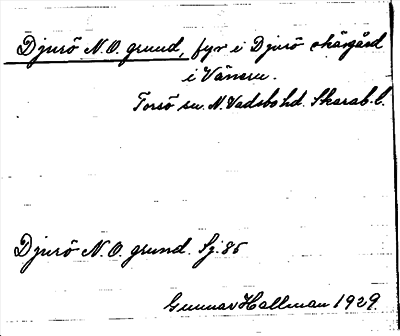 Djurö N.O. grund, fyr i Djurö skärgård
i Vänern.
Torsö sn. N. Vadsbo hd. Skarab. l.
Djurö N.O. grund. Sj. 85
Gunnar Hallman 1929